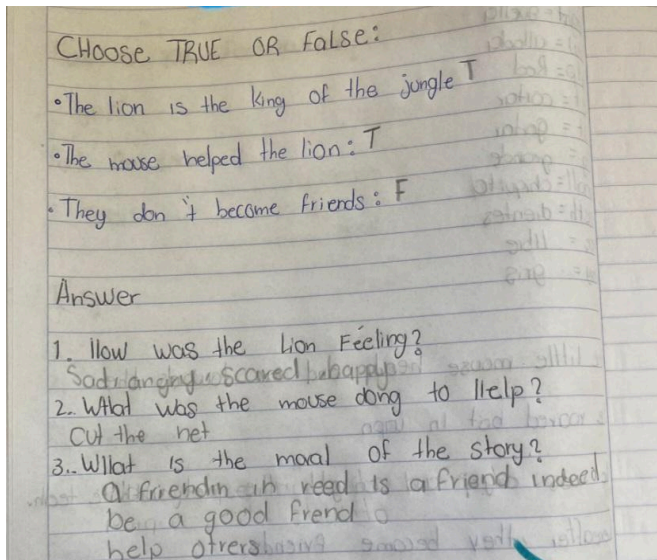 CHOOSE TRUE OR False:
•The lion is the king of the jungle T
•The mouse helped the lion: T
•They don't become friends: F
Answer
1. How was the Lion Feeling?
Sad angry scared
2.. What was the mouse dong to Help?
Cut the net
3.. What is the maal of the story?
a friendin in reed is a friend indeed
be a good frend
help otrers